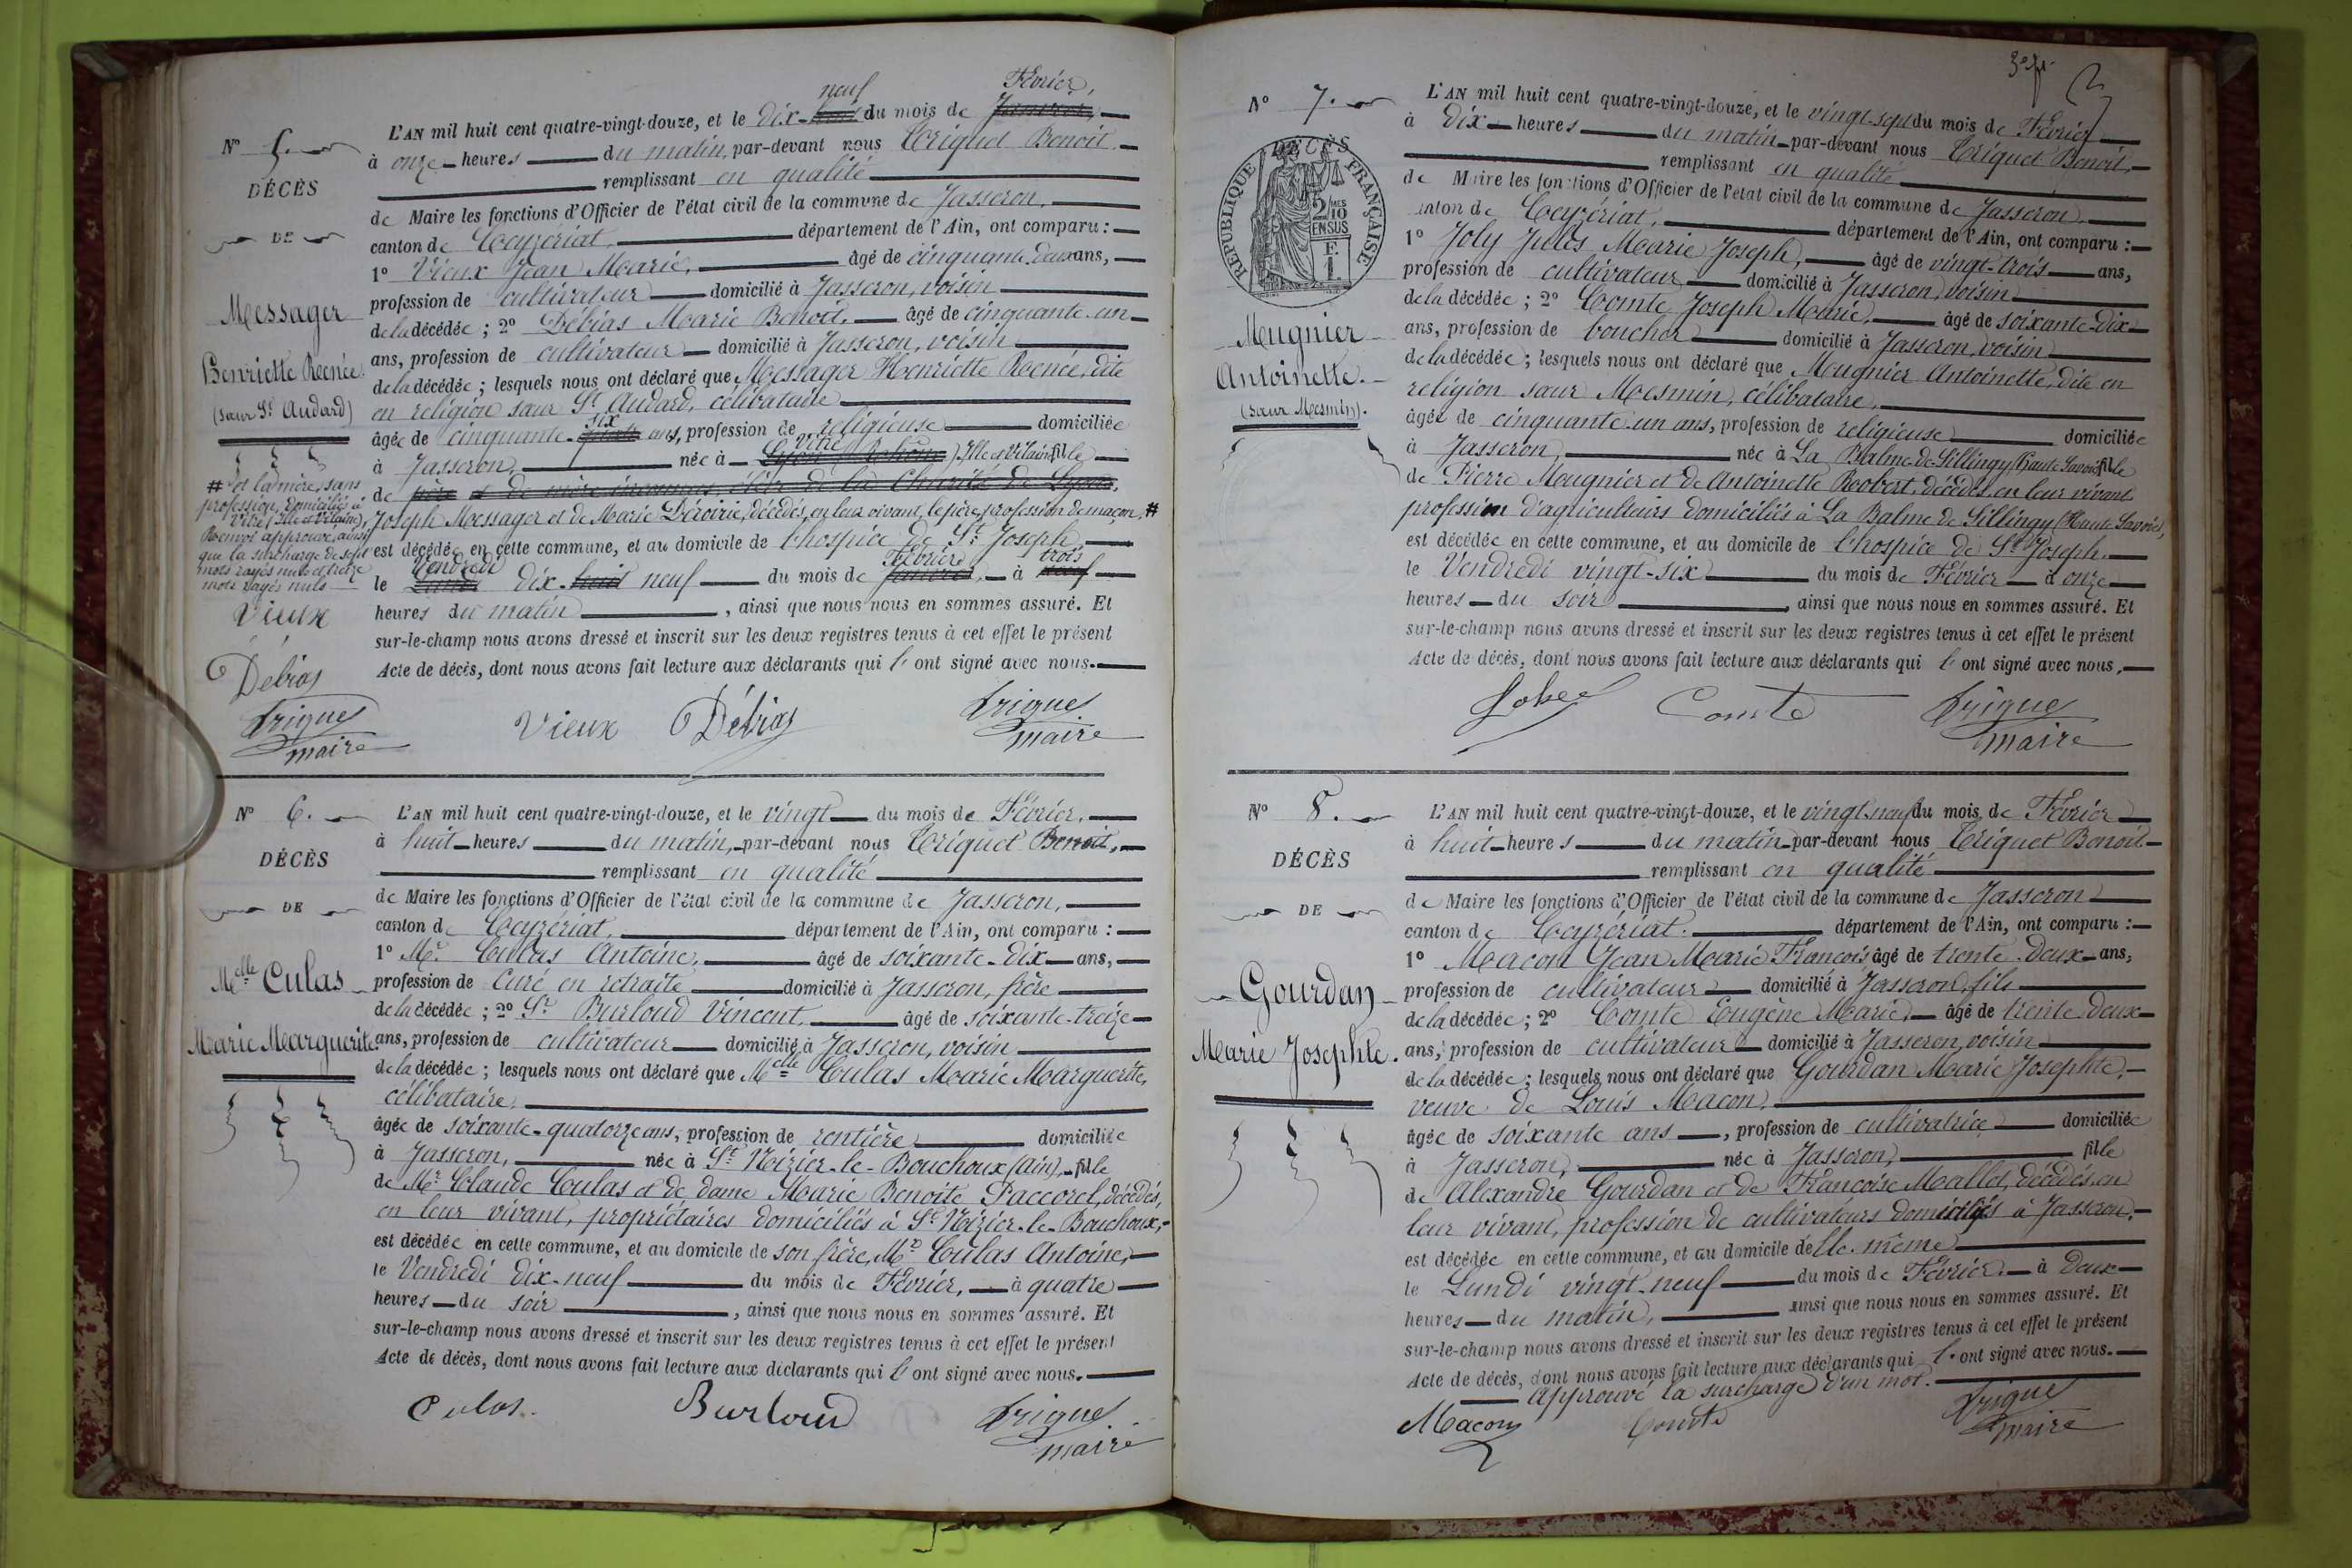 N° 5.
DÉCÈS
DE
Messager
Henriette Renée
(sœur St Audard)
# et la mère, sans
profession, domiciliés à
Vitré (Ille et Vilaine),
Renvoi approuvé, ainsi
que la surcharge de sept
mots rayés nuls et treize
mots rayés nuls
Vieux
Débias
Triquet
maire
neuf Février,
L'AN mil huit cent quatre-vingt-douze, et le dix-huit du mois de Janvier,
à onze heures du matin, par-devant nous Triquet Benoit,
remplissant en qualité
de Maire les fonctions d'Officier de l'état civil de la commune de Jasseron,
canton de Ceyzériat, département de l'Ain, ont comparu :
1° Vieux Jean Marie, âgé de cinquante-deux ans,
profession de cultivateur domicilié à Jasseron, voisin
de la décédée ; 2° Débias Marie Benoit, âgé de cinquante-un
ans, profession de cultivateur domicilié à Jasseron, voisin
de la décédée ; lesquels nous ont déclaré que Messager Henriette Renée, dite
en religion sœur St Audard, célibataire
six
âgée de cinquante- ans, profession de religieuse domiciliée
Vitré
à Jasseron, née à Lyon (Rhône) Ille et Vilaine, fille
de père et de mère inconnus élève de la Charité de Lyon,
Joseph Messager et de Marie Déroirie, décédés, en leur vivant, le père, profession de maçon, #
est décédée en cette commune, et au domicile de l'hospice de St Joseph,
Vendredi Février trois
le Lundi dix-huit neuf du mois de Janvier, à neuf
heures du matin, ainsi que nous nous en sommes assuré. Et
sur-le-champ nous avons dressé et inscrit sur les deux registres tenus à cet effet le présent
Acte de décès, dont nous avons fait lecture aux déclarants qui l'ont signé avec nous.
Vieux Débias Triquet
maire
N° 6.
DÉCÈS
DE
Melle Culas
Marie Marguerite
L'AN mil huit cent quatre-vingt-douze, et le vingt du mois de Février,
à huit heures du matin, par-devant nous Triquet Benoit,
remplissant en qualité
de Maire les fonctions d'Officier de l'état civil de la commune de Jasseron,
canton de Ceyzériat, département de l'Ain, ont comparu :
1° Mr Culas Antoine, âgé de soixante-dix ans,
profession de Curé en retraite domicilié à Jasseron, frère
de la décédée ; 2° Sr Burloud Vincent, âgé de soixante-treize
ans, profession de cultivateur domicilié à Jasseron, voisin
de la décédée ; lesquels nous ont déclaré que Melle Culas Marie Marguerite,
célibataire,
âgée de soixante-quatorze ans, profession de rentière domiciliée
à Jasseron, née à St Nizier-le-Bouchoux (Ain), fille
de Mr Claude Culas et de dame Marie Benoite Paccorel, décédés,
en leur vivant, propriétaires domiciliés à St Nizier-le-Bouchoux,
est décédée en cette commune, et au domicile de son frère, Mr Culas Antoine,
le Vendredi dix-neuf du mois de Février, à quatre
heures du soir, ainsi que nous nous en sommes assuré. Et
sur-le-champ nous avons dressé et inscrit sur les deux registres tenus à cet effet le présent
Acte de décès, dont nous avons fait lecture aux déclarants qui l'ont signé avec nous.
Culas. Burloud Triquet
maire
N° 7.
DÉCÈS
RÉPUBLIQUE FRANÇAISE
2/10
EN SUS
F.
1
Meugnier
Antoinette.
(sœur Mesmin).
L'AN mil huit cent quatre-vingt-douze, et le vingt-sept du mois de Février
à dix heures du matin par-devant nous Triquet Benoit,
remplissant en qualité
de Maire les fonctions d'Officier de l'état civil de la commune de Jasseron,
canton de Ceyzériat, département de l'Ain, ont comparu :
1° Joly Jules Marie Joseph, âgé de vingt-trois ans,
profession de cultivateur domicilié à Jasseron, voisin
de la décédée ; 2° Comte Joseph Marie, âgé de soixante-dix
ans, profession de boucher domicilié à Jasseron, voisin
de la décédée ; lesquels nous ont déclaré que Meugnier Antoinette, dite en
religion sœur Mesmin, célibataire,
âgée de cinquante-un ans, profession de religieuse domiciliée
à Jasseron, née à La Balme de Sillingy (Haute Savoie) fille
de Pierre Meugnier et de Antoinette Robert, décédés, en leur vivant
profession d'agriculteurs domiciliés à La Balme de Sillingy (Haute Savoie),
est décédée en cette commune, et au domicile de l'hospice de St Joseph,
le Vendredi vingt-six du mois de Février à onze
heures du soir, ainsi que nous nous en sommes assuré. Et
sur-le-champ nous avons dressé et inscrit sur les deux registres tenus à cet effet le présent
Acte de décès, dont nous avons fait lecture aux déclarants qui l'ont signé avec nous,
Comte Triquet
maire
N° 8.
DÉCÈS
DE
Gourdan
Marie Josephte.
L'AN mil huit cent quatre-vingt-douze, et le vingt-neuf du mois de Février
à huit heures du matin par-devant nous Triquet Benoit
remplissant en qualité
de Maire les fonctions d'Officier de l'état civil de la commune de Jasseron
canton de Ceyzériat. département de l'Ain, ont comparu :
1° Macon Jean Marie François âgé de trente-deux ans,
profession de cultivateur domicilié à Jasseron, fils
de la décédée ; 2° Comte Eugène Marie, âgé de trente-deux
ans, profession de cultivateur domicilié à Jasseron, voisin
de la décédée ; lesquels nous ont déclaré que Gourdan Marie Josephte,
veuve de Louis Macon,
âgée de soixante ans, profession de cultivatrice domiciliée
à Jasseron, née à Jasseron, fille
de Alexandre Gourdan et de Françoise Mallet, décédés, en
leur vivant, profession de cultivateurs domiciliés à Jasseron,
est décédée en cette commune, et au domicile d'elle-même
le Lundi vingt-neuf du mois de Février à deux
heures du matin, ainsi que nous nous en sommes assuré. Et
sur-le-champ nous avons dressé et inscrit sur les deux registres tenus à cet effet le présent
Acte de décès, dont nous avons fait lecture aux déclarants qui l'ont signé avec nous.
Approuvé la surcharge d'un mot.
Macon Comte Triquet
maire